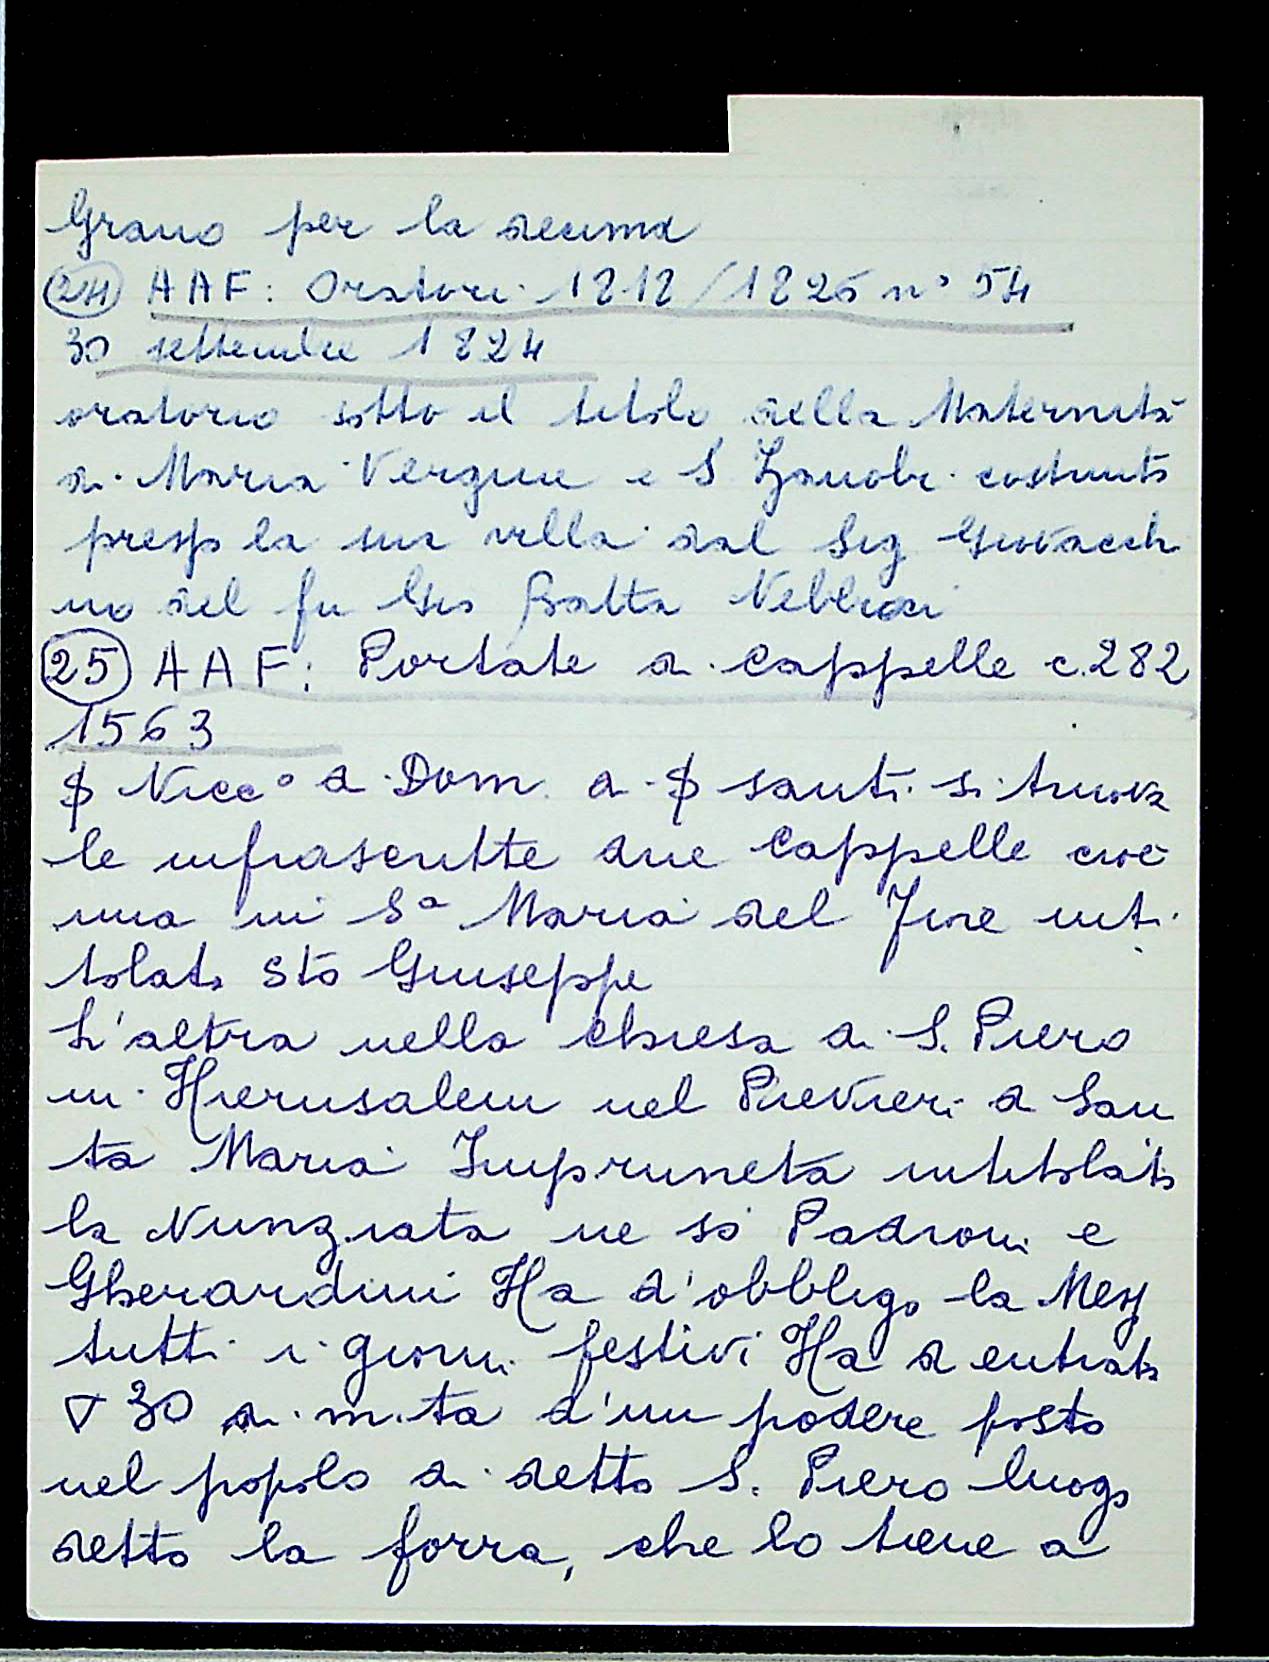 Grano per la decima
(24) AAF: Oratori 1818/1826 n° 54
30 settembre 1824
oratorio sotto il titolo della Maternità
di Maria Vergine e S Zanobi costruito
presso la sua villa dal Sig Giovacch
no del fu Gio Batta Nebbiai
(25) AAF: Portate di Cappelle c.282
1563
Nicc° di Dom. di santi si truova
le infrascritte due Cappelle cioè
una in Sª Maria del Fiore inti
tolata Sto Giuseppe
L'altra nella chiesa di S. Piero
in Hierusalem nel Pievieri di San
ta Maria Impruneta intitolata
la Nunziata ne so Padroni e
Gherardini Ha d'obbligo la Mess
tutti i giorni festivi Ha d entrata
30 di mità d'un podere posto
nel popolo di detto S. Piero luogo
detto la forra, che lo tiene a